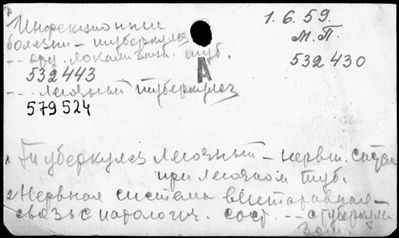 Инфекционные 1.6.59.
болезни – туберкулез М.П.
-- орг. локализац. туб.
532 443 А 532 430
--- Легочный туберкулез
579 524
1 Туберкулез легочный – нервн. систем
при легочном туб.
2 Нервная система вегетативная –
связь с патологич. сост. -- с туберкулезом